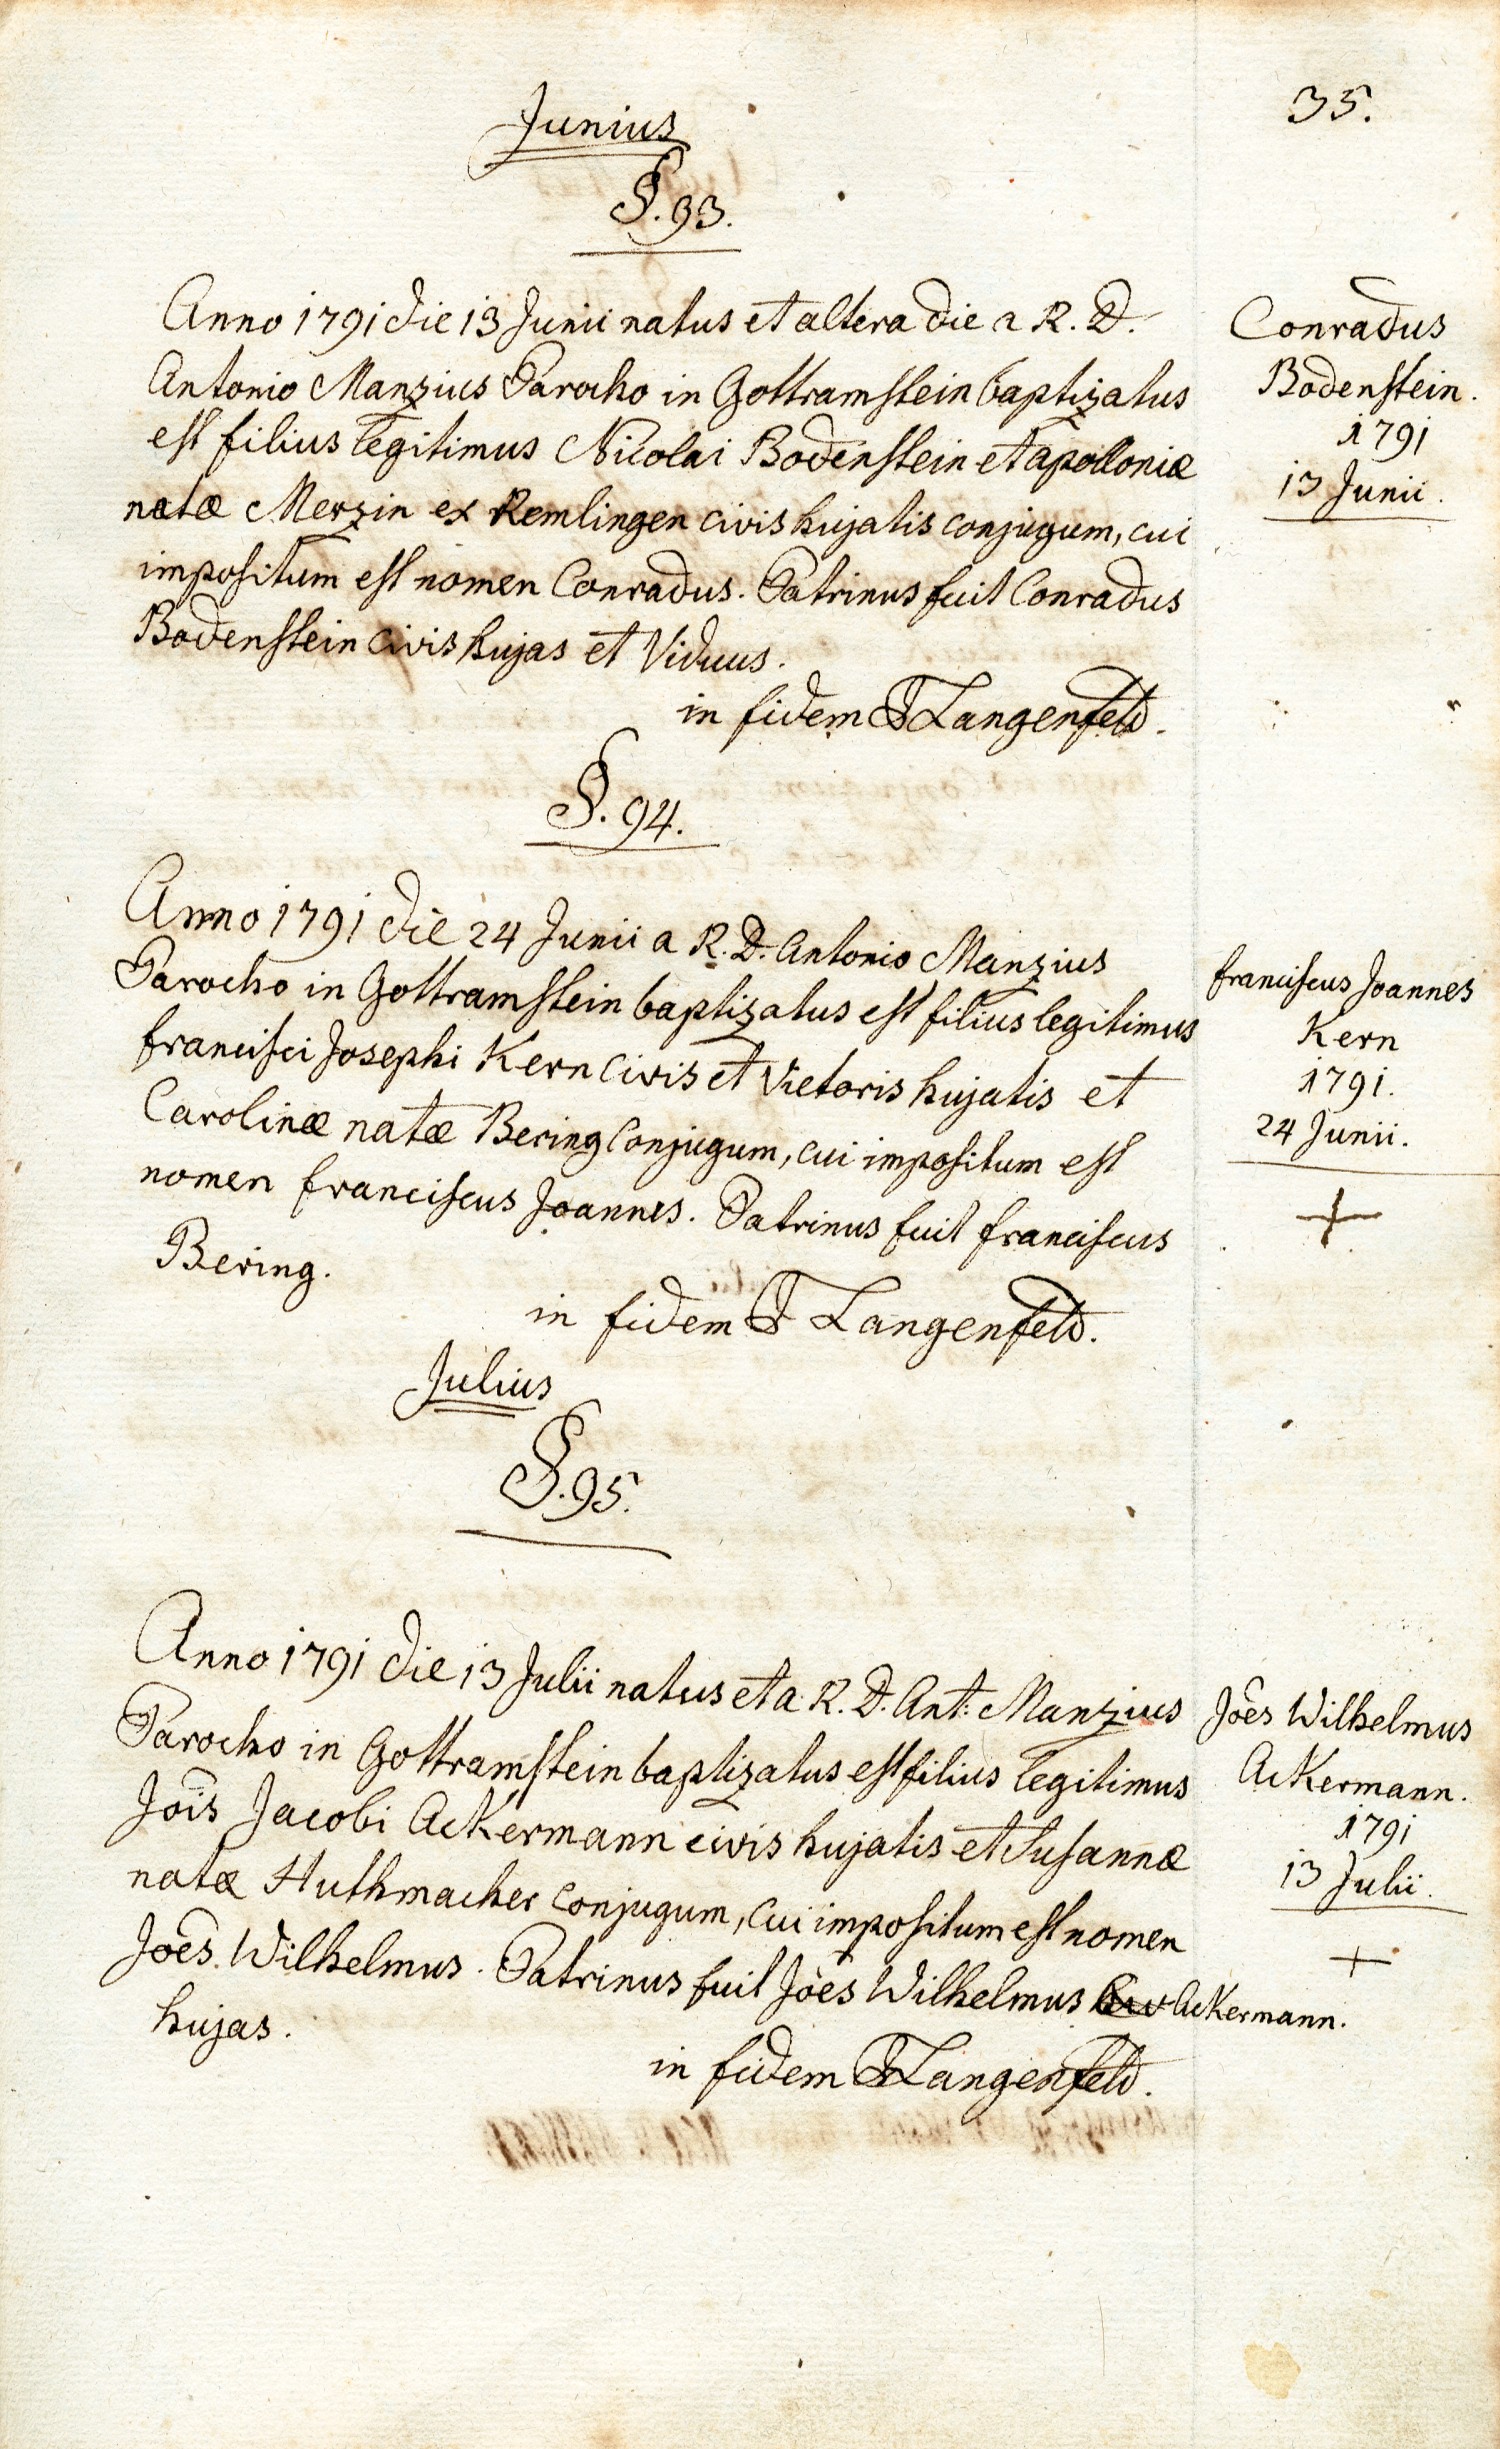 35.
Junius
§. 93.
Anno 1791 die 13 Junii natus et altera die a R. D.
Antonio Manzius Parocho in Gottramstein baptizatus
est filius legitimus Nicolai Bodenstein et apolloniæ
natæ Merzin ex Remlingen civis hujatis conjugum, cui
impositum est nomen Conradus. Patrinus fuit Conradus
Bodenstein civis hujas et Viduus.
in fidem F Langenfeld.
Conradus
Bodenstein.
1791
13 Junii.
§. 94.
Anno 1791 die 24 Junii a R. D. Antonio Manzius
Parocho in Gottramstein baptizatus est filius legitimus
francisci Josephi Kern civis et Vietoris hujatis et
Carolinæ natæ Bering Conjugum, cui impositum est
nomen franciscus Joannes. Patrinus fuit franciscus
Bering.
in fidem F Langenfeld.
franciscus Joannes
Kern
1791.
24 Junii.
+
Julius
§. 95.
Anno 1791 die 13 Julii natus et a R. D. Ant: Manzius
Parocho in Gottramstein baptizatus est filius legitimus
Jois Jacobi Ackermann civis hujatis et Susannæ
natæ Huthmacher conjugum, cui impositum est nomen
Joês Wilhelmus. Patrinus fuit Joês Wilhelmus Ackermann.
hujas.
in fidem F Langenfeld.
Joês Wilhelmus
Ackermann.
1791
13 Julii.
+